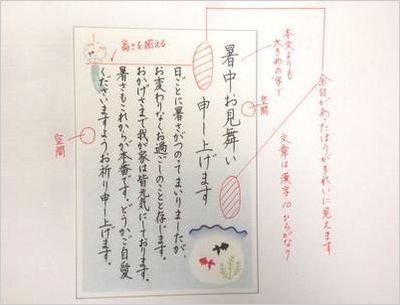 余白があったほうがきれいに見えます
文章は漢字10ひらがな
本文よりも
大きめの字で
空間
暑中お見舞い
申し上げます
高さを揃える
日ごとに暑さがつのってまいりましたが、
お変わりなくお過ごしのことと存じます。
おかげさまで我が家は皆元気にしております。
暑さもこれからが本番です。どうかご自愛
くださいますようお祈り申し上げます。
空間